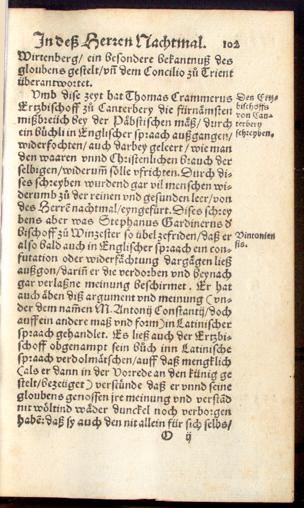 In deß Herren Nachtmal. 102
Wirtenberg/ ein besondere bekantnuß des
gloubens gestelt/ vn̄ dem Concilio zů Trient
überantwortet.
Vmb dise zeyt hat Thomas Crammerus
Ertzbischoff zů Canterbery die fürnämsten
mißbreüch bey der Päbstischen mäß/ durch
ein büchli in Englischer spraach außgangen/
widerfochten/ auch darbey geleert/ wie man
den waaren vnnd Christenlichen brauch der
selbigen/ widerum̄ sölle vfrichten. Durch di-
ses schreyben wurdend gar vil menschen wi-
derumb zů der reinen vnd gesunden leer/ von
des Herrē nachtmal/ eyngefürt. Dises schrey
bens aber was Stephanus Gardinerus
bischoff zů Winzester so übel zefreden/ daß er
also bald auch in Englischer spraach ein con-
futation oder widerfächtung dargägen ließ
außgon/ darin̄ er die verdorben vnd beynach
gar verlaßne meinung beschirmet. Er hat
auch äben diß argument vnd meinung (vn-
der dem nam̄en M. Antonij Constantij/ doch
auff ein andere maß vnd form) in Latinischer
spraach gehandlet. Es ließ auch der Ertzbi-
schoff obgenampt sein bůch inn Latinische
spraach verdolmätschen/ auff daß mengklich
(als er dann in der Vorrede an den künig ge
stelt/ bezeüget) verstünde daß er vnnd seine
gloubens genossen jre meinung vnd verstād
nit wöltind wäder dunckel noch verborgen
haben: daß sy auch den nit allein für sich selbs/
O ij
Den Ertz-
bischoffs
von Can-
terbery
schreyben.
Vintonien
sis.